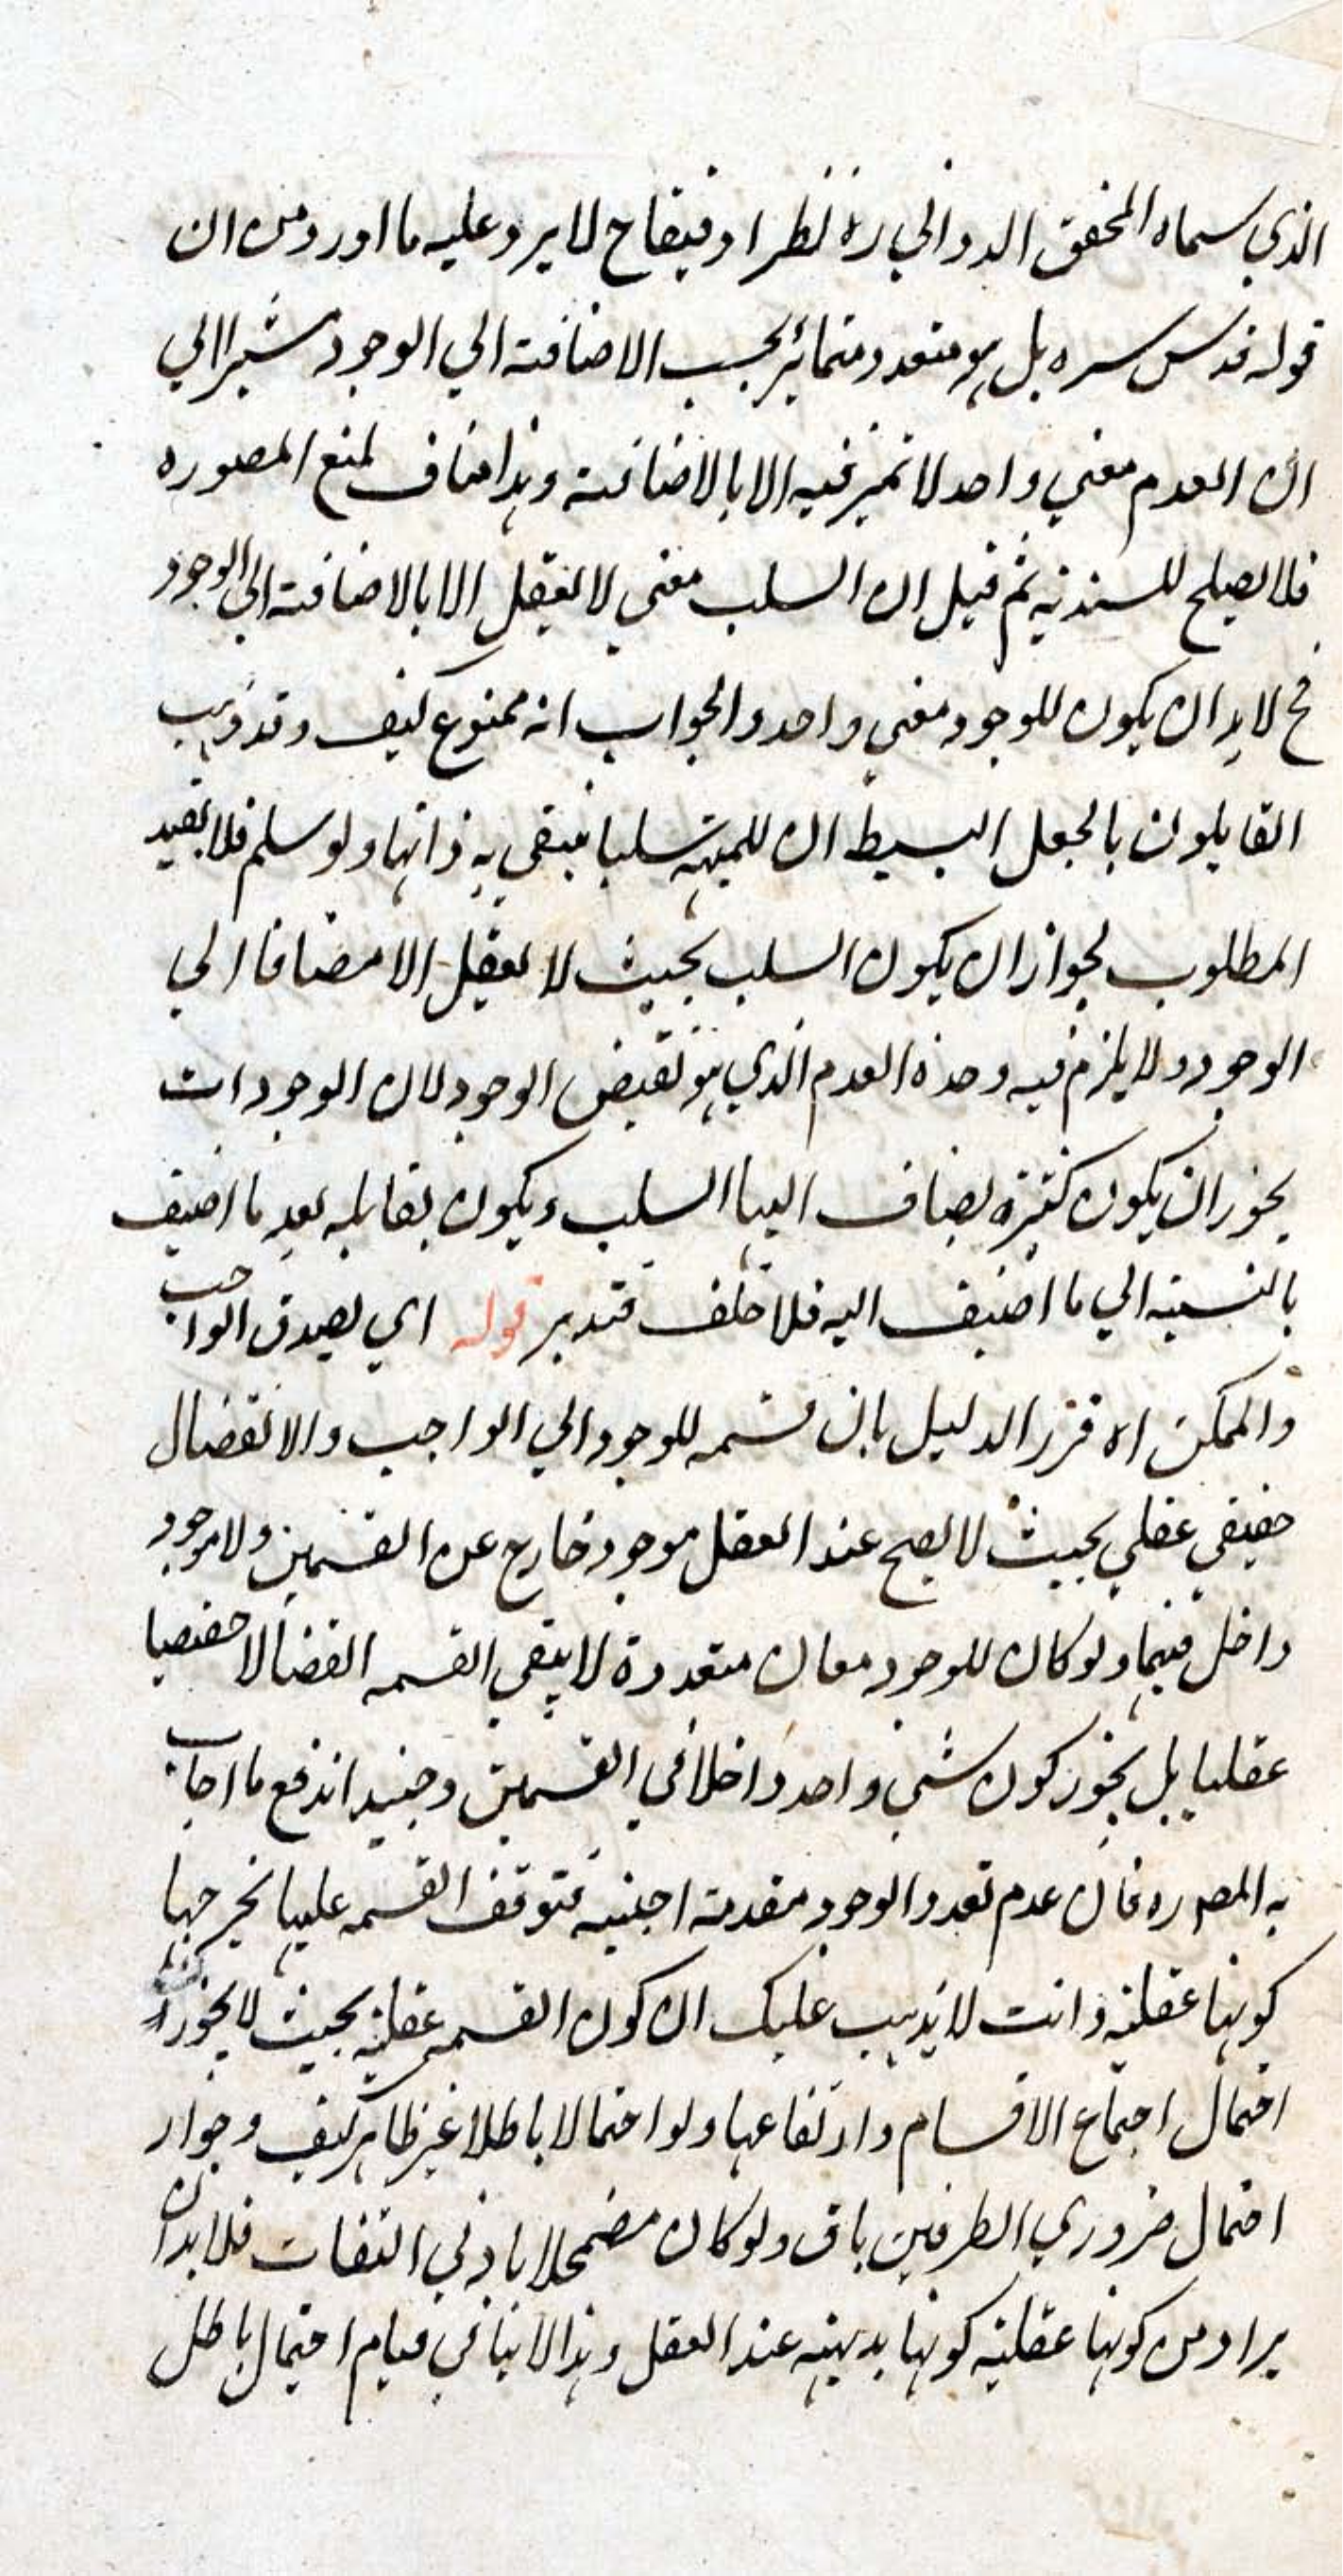 الذي سماه المحقق الدواني ره نظرا دقيقا ح لا يرد عليه ما اورد من ان
قوله قدس سره بل هو متعدد متمائز بحسب الاضافة الي الوجود مشيرا الي
ان العدم معني واحد لا تميز فيه الا بالاضافة وهذا مناف لمنع المص وره
فلا يصلح للسندية ثم قيل ان السلب معني لا يعقل الا بالاضافة الي الوجود
فح لا بد ان يكون للوجود معني واحد والجواب انه ممنوع كيف وقد ذهب
القايلون بالجعل البسيط ان للمهية سلبا ينتفي به ذاتها ولو سلم فلا يفيد
المطلوب لجواز ان يكون السلب بحيث لا يعقل الا مضافا الي
الوجود ولا يلزم فيه وحدة العدم الذي هو نقيض الوجود لان الوجودات
يجوز ان يكون كثيرة يضاف اليها السلب ويكون تقابله بعد ما اضيف
بالنسبة الي ما اضيف اليه فلا خلف فتدبر قوله اي يصدق الواجب
والممكن اه قرر الدليل بان قسمه للوجود الي الواجب والانفصال
حقيقي عقلي بحيث لا يصح عند العقل موجود خارج عن القسمين ولا موجود
داخل فيهما ولو كان للوجود معان متعددة لا يبقي القسمه انفصالا حقيقيا
عقليا بل يجوز كون شي واحد داخلا في القسمين وحينيد اندفع ما اجاب
به المص ره فان عدم تعدد الوجود مقدمة اجنبية فتوقف القسمه عليها يخرجها
كونها عقلية وانت لا يذهب عليك ان كون القسمه عقلية بحيث لا يجوز
احتمال اجتماع الاقسام وارتفاعها ولو احتمالا باطلا غير ظاهر كيف وجواز
احتمال ضروري الطرفين باق ولو كان مضمحلا بادني التفات فلا بد ان
يراد من كونها عقلية كونها بديهية عند العقل وهذا لا ينافي قيام احتمال باطل